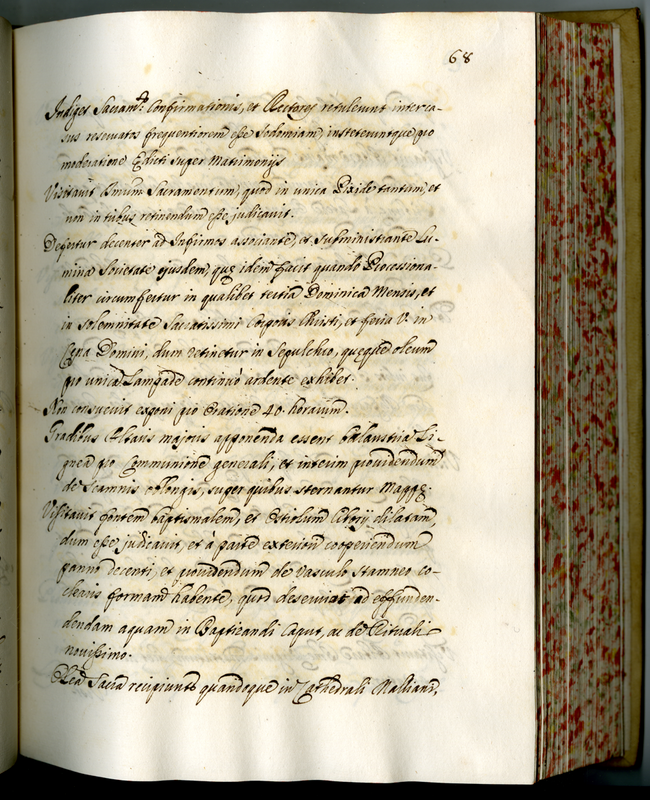 68
Indiget Sacram.to Confirmationis, et Rectores retulerunt inter ca-
sus reservatos frequentiorem esse Sodomiam, institeruntque pro
moderatione Edicti super Matrimonijs
Visitavit Smum Sacramentum, quod in unica Pixide tantum, et
non in tribus retinendum esse judicavit.
Defertur decenter ad Infirmos associante, et subministrante Lu-
mina Societate ejusdem, quę idem facit quando Processiona-
liter circumfertur in qualibet tertia Dominica Mensis, et
in solemnitate Sacratissimi Corporis Christi, et feria V. in
Cęna Domini, dum detinetur in Sepulchro, quęque oleum
pro unica Lampade continuò ardente exhibet.
Non consuevit exponi pro Oratione 40. horarum.
Gradibus Altaris majoris apponenda essent balaustria Li-
gnea pro Communione generali, et interim providendum
de Scamnis oblongis, super quibus sternantur Mappę.
Visitavit fontem baptismalem, et Ostiolum Ciborij dilatan-
dum esse judicavit, et à parte exteriori cooperiendum
panno decenti, et providendum de Vasculo stamneo co-
clearis formam habente, quod deserviat ad effunden-
dendam aquam in Baptizandi Caput, ac de Rituali
novissimo.
Olea Sacra recipiunt quandoque in Cathedrali